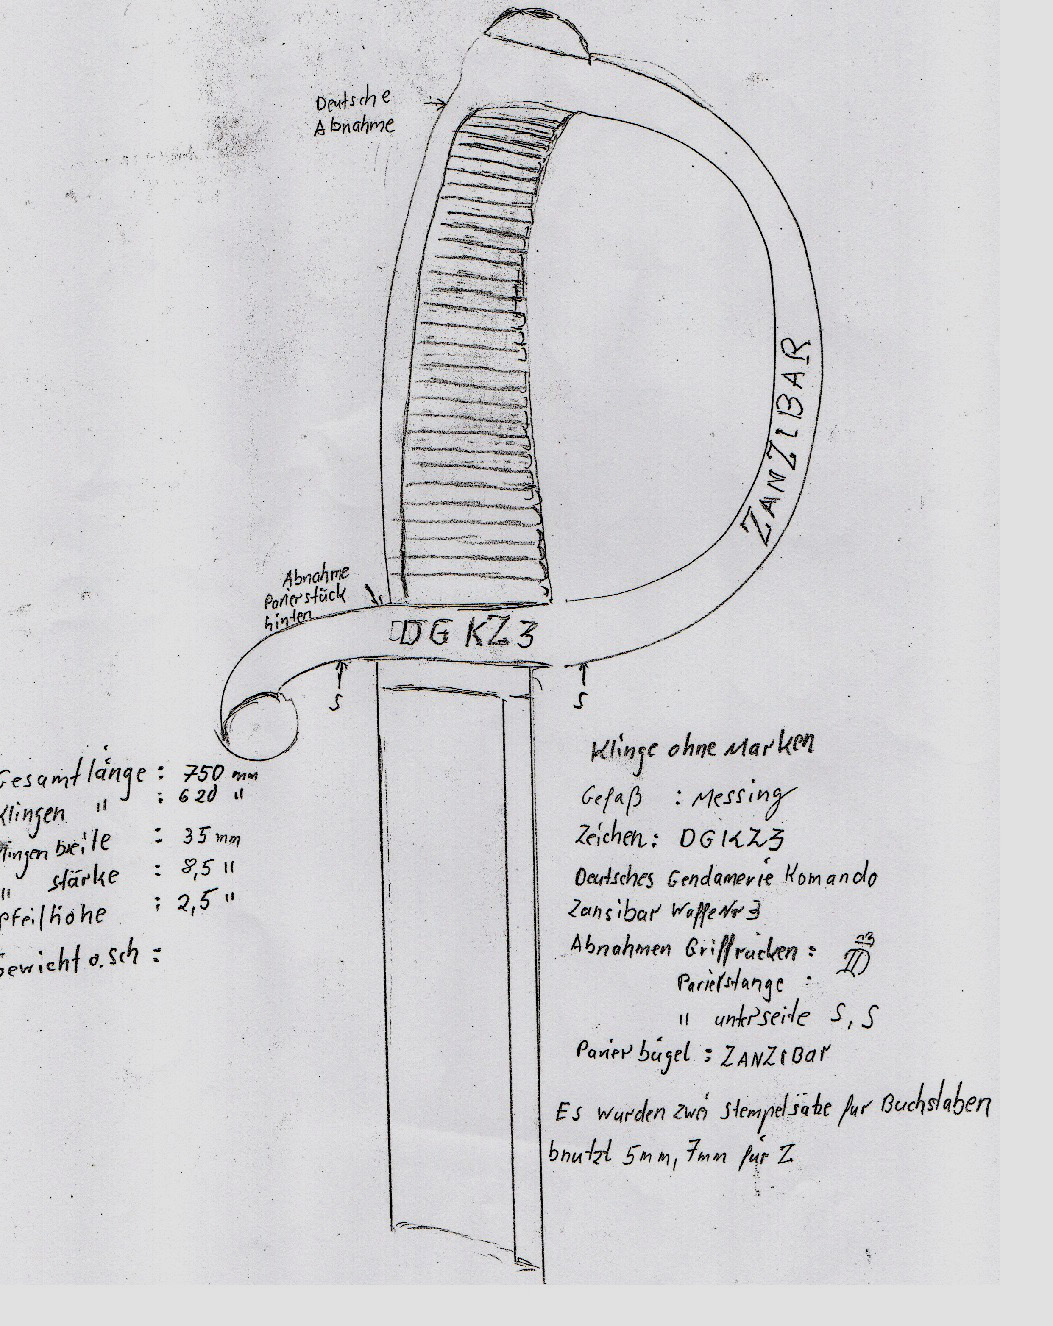 Deutsche
Abnahme
ZANZIBAR
Abnahme
Parierstück
hinten
DG KZ 3
S
S
Gesamtlänge : 750 mm
Klingen " : 620 "
Klingen breite : 35 mm
" stärke : 8,5 "
Pfeilhöhe : 2,5 "
Gewicht o. sch :
Klinge ohne Marken
Gefaß : Messing
Zeichen : DGKZ3
Deutsches Gendamerie Komando
Zansibar Waffe Nr 3
Abnahmen Griffrücken :
Parierstange :
" unterseite S, S
Parier bügel : ZANZIBar
Es wurden zwei Stempelsätze für Buchstaben
bnutzt 5mm, 7mm für Z